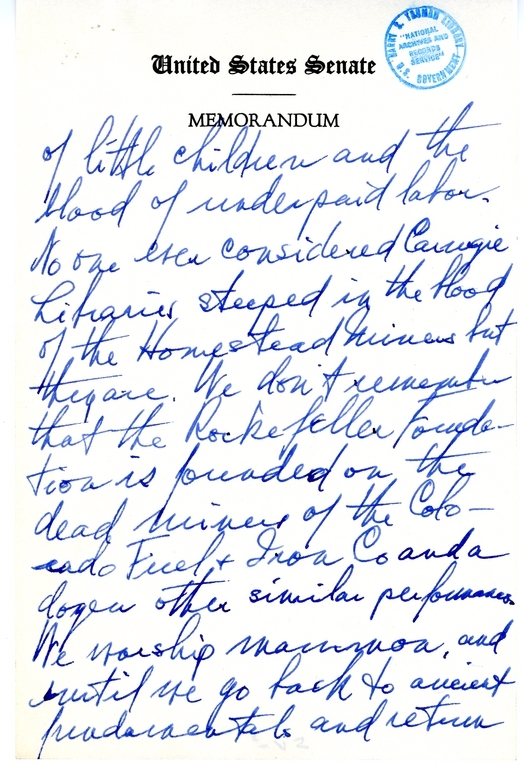 HARRY S. TRUMAN LIBRARY
"NATIONAL
ARCHIVES AND
RECORDS
SERVICE"
U.S. GOVERNMENT
United States Senate
MEMORANDUM
of little children and the
blood of underpaid labor.
No one ever considered Carnegie
Libraries steeped in the blood
of the Homestead Miners but
they are. We don't remember
that the Rockefeller Founda-
tion is founded on the
dead miners of the Colo-
rado Fuel & Iron Co and a
dozen other similar performances.
We worship mammon, and
until we go back to ancient
fundamentals and return